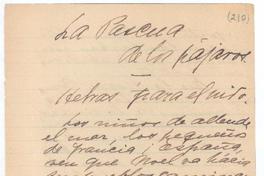 (210)
La Pascua
de los pájaros.
Letras para el nido.
Los niños de allende
el mar, los pequeños
de Francia i España,
ven que Noel va hacia